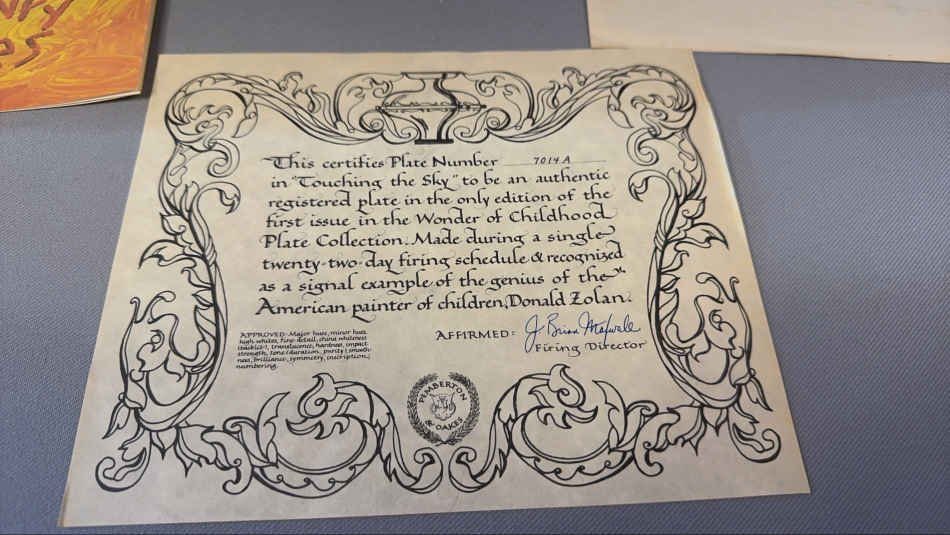 This certifies Plate Number 7014 A
in "Touching the Sky" to be an authentic
registered plate in the only edition of the
first issue in the Wonder of Childhood
Plate Collection. Made during a single
twenty-two-day firing schedule & recognized
as a signal example of the genius of the
American painter of children, Donald Zolan.
APPROVED: Major hues, minor hues
high whites, fine detail, china whiteness
translucence, hardness, impact
strength, tone duration, purity, smooth-
ness, brilliance, symmetry, inscription,
numbering.
AFFIRMED: J. Brian
Firing Director
PEMBERTON
& OAKES